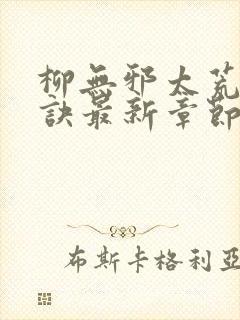 柳無邪太荒
訣最新章節
布斯卡格利亞